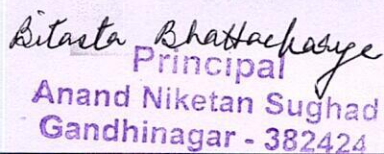 Bitasta Bhattacharya
Principal
Anand Niketan Sughad
Gandhinagar - 382424